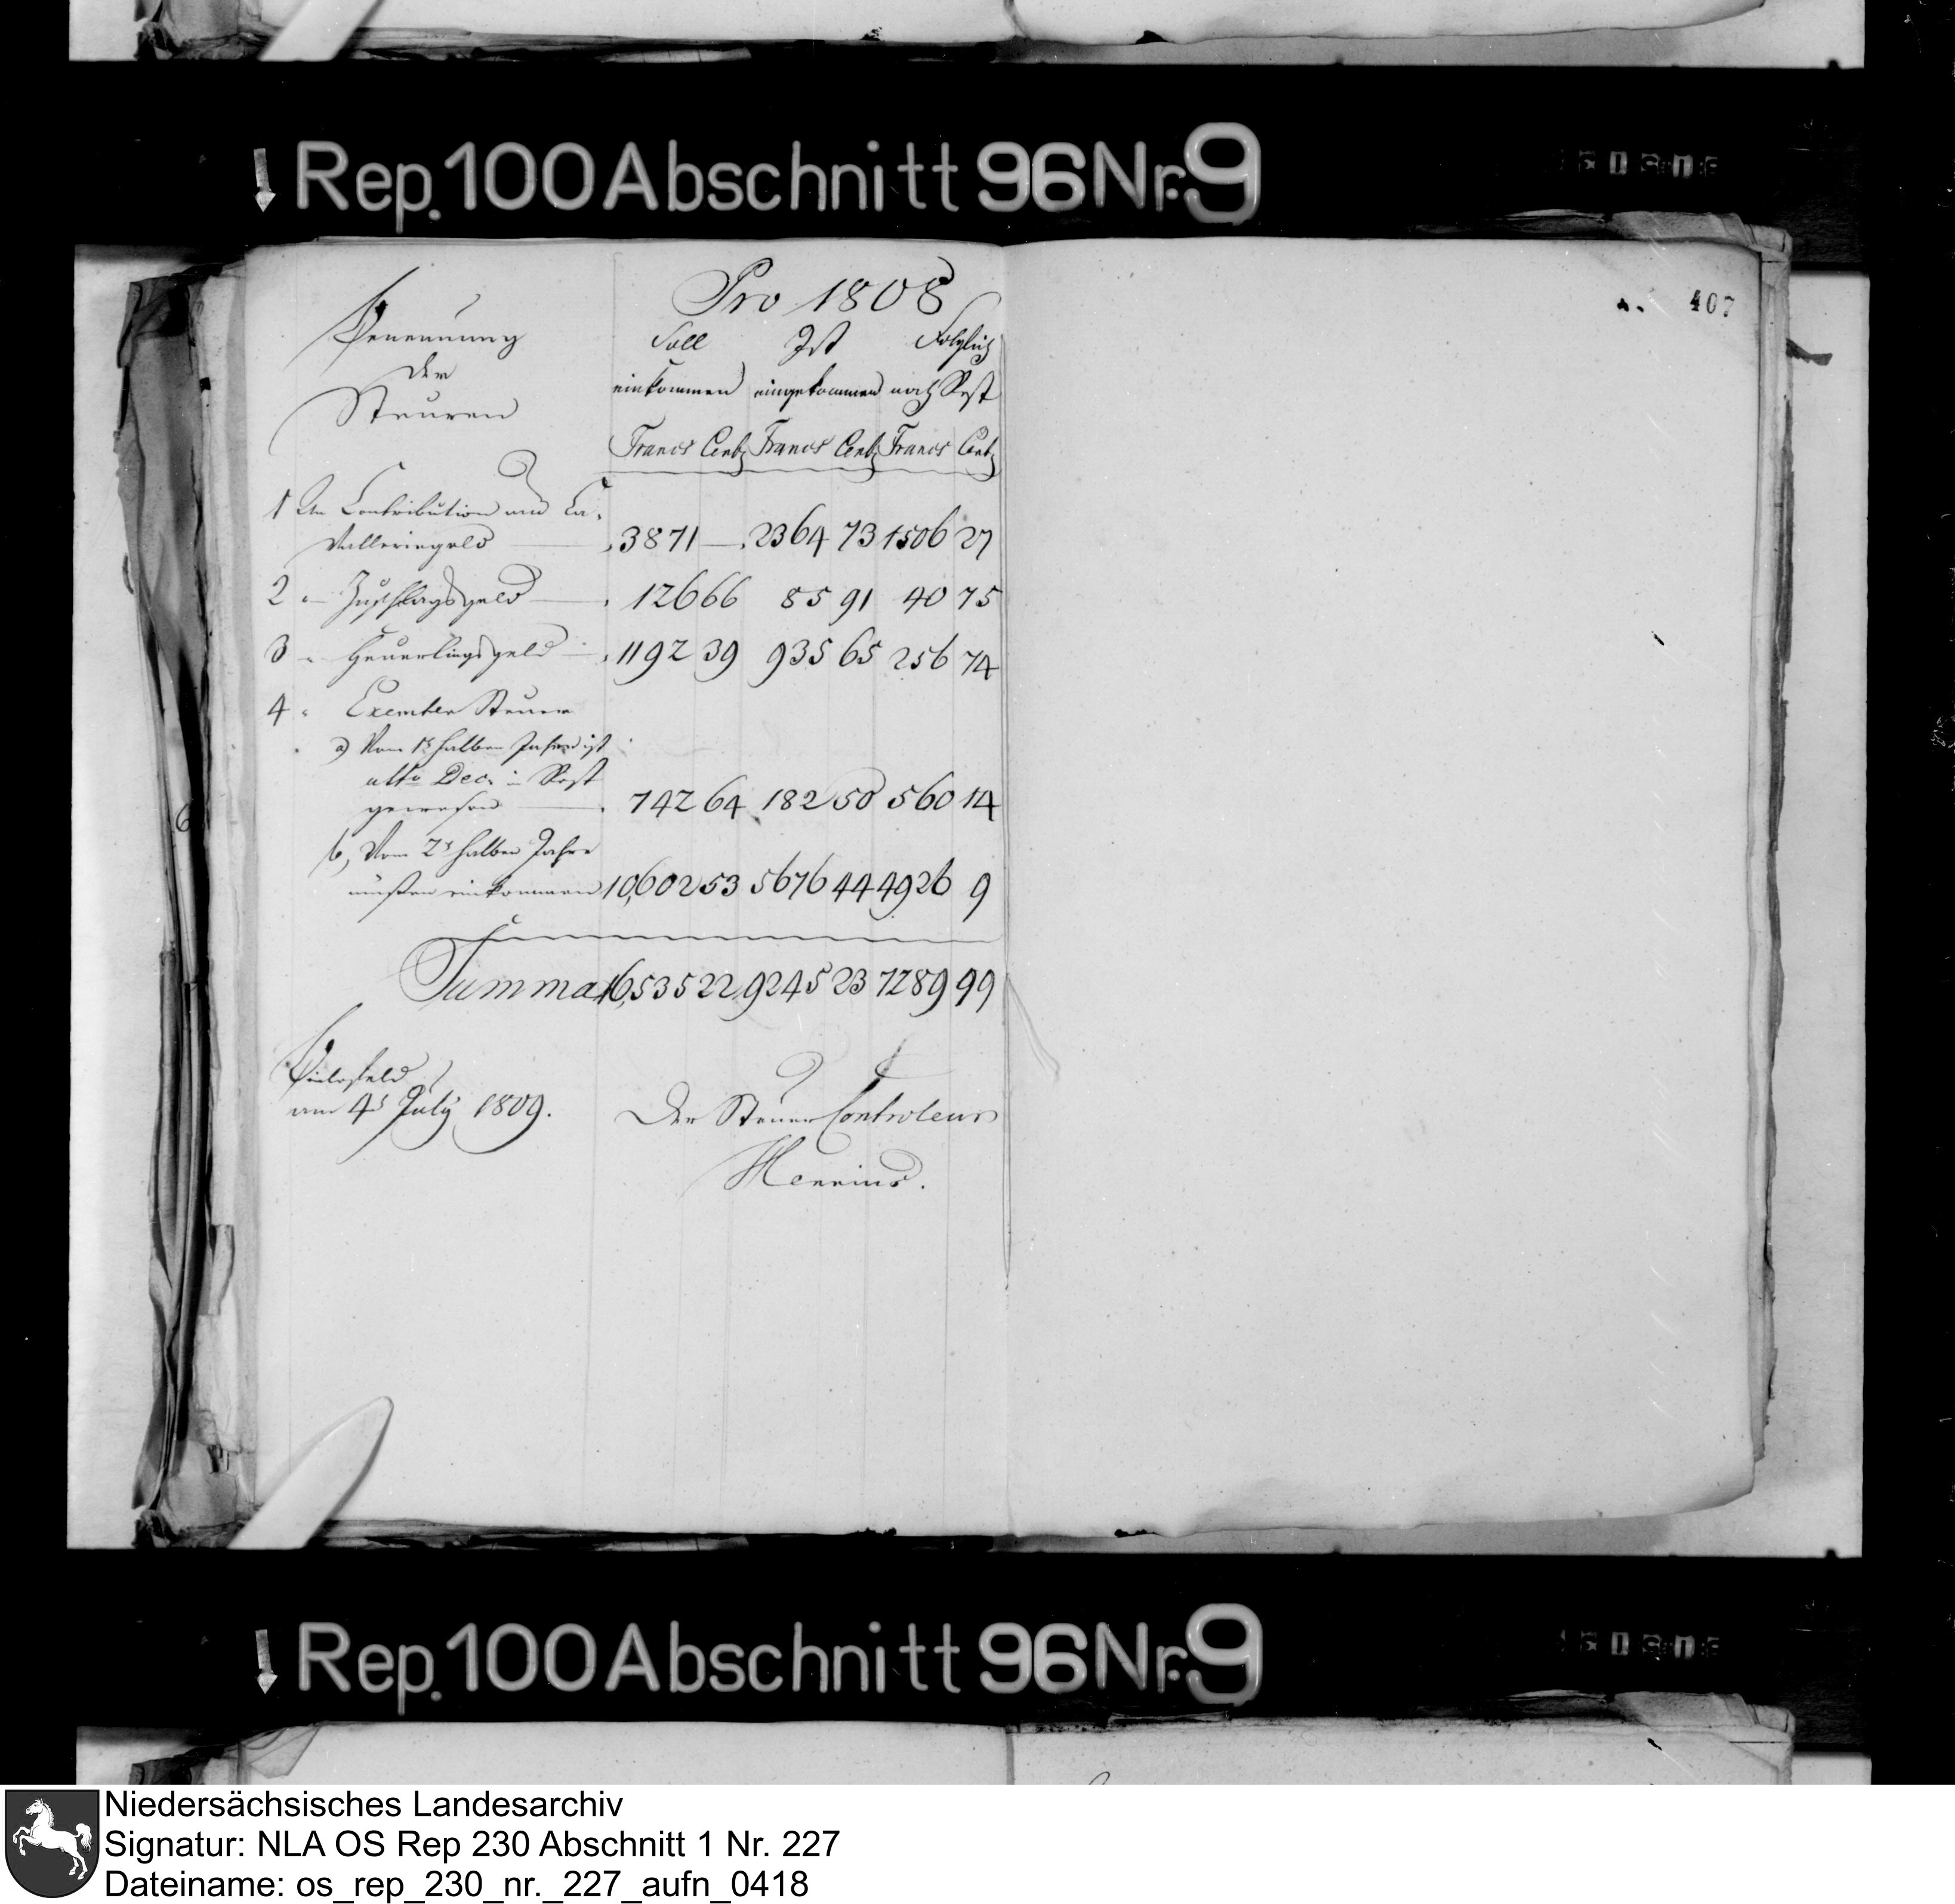 Rep. 100 Abschnitt 96 Nr. 9
407
Pro 1808
Benennung
der
Steuren
Soll Ist Folglich
einkommen eingekommen noch Rest
Francs Cent Francs Cent Francs Cent
1 An Contribution und Ca-
valleriegeld 3871 — 2364 73 1506 27
2 " Zuschlagsgeld 126 66 85 91 40 75
3 " Heuerlingsgeld 1192 39 935 65 256 74
4 " Exemten Steuer
a) Vom 1s halben Jahre ist
ulto Dec. in Rest
gewesen 742 64 182 50 560 14
b, Vom 2s halben Jahre
müßen einkommen 10,602 53 5676 44 4926 9
Summa 16,535 22 9245 23 7289 99
am 4s July 1809.
Der Steuer Controleur
Rep. 100 Abschnitt 96 Nr. 9
Niedersächsisches Landesarchiv
Signatur: NLA OS Rep 230 Abschnitt 1 Nr. 227
Dateiname: os_rep_230_nr._227_aufn_0418